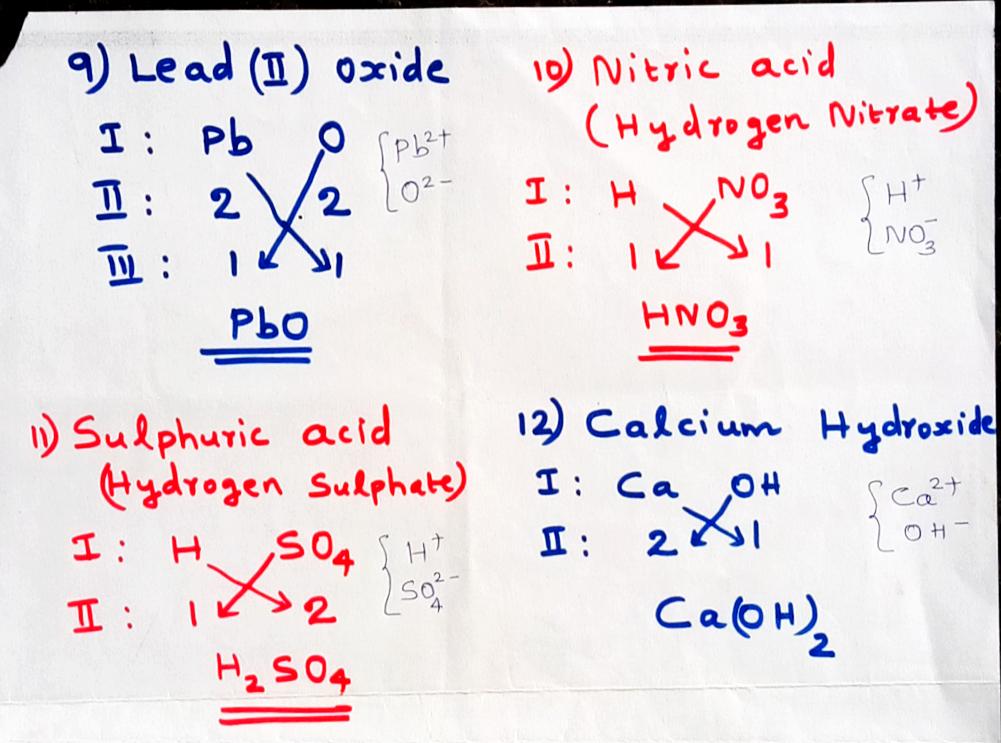 9) Lead (II) oxide
I : Pb O { Pb²⁺
II : 2 2 O²⁻
III : 1 1
PbO
10) Nitric acid
(Hydrogen Nitrate)
I : H NO₃ { H⁺
II : 1 1 NO₃⁻
HNO₃
11) Sulphuric acid
(Hydrogen Sulphate)
I : H SO₄ { H⁺
II : 1 2 SO₄²⁻
H₂SO₄
12) Calcium Hydroxide
I : Ca OH { Ca²⁺
II : 2 1 OH⁻
Ca(OH)₂